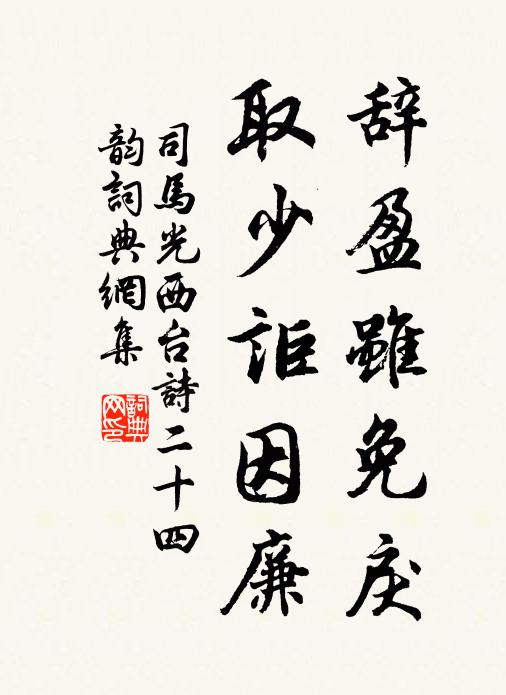 辞盈雖免戾
取少詎因廉
司馬光西台詩二十四
韵詞典網集
詞典网印